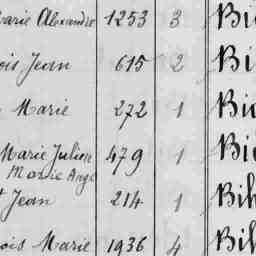 Marie Alexandre 1253 3
ois Jean 615 2
Marie 272 1
Marie Julien 479 1
Marie Ange
Jean 214 1
ois Marie 1936 4